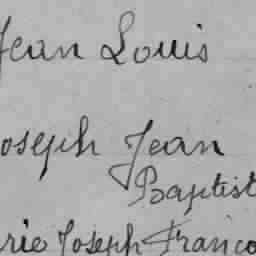 Jean Louis
Joseph Jean
Baptist
rie Joseph Franço